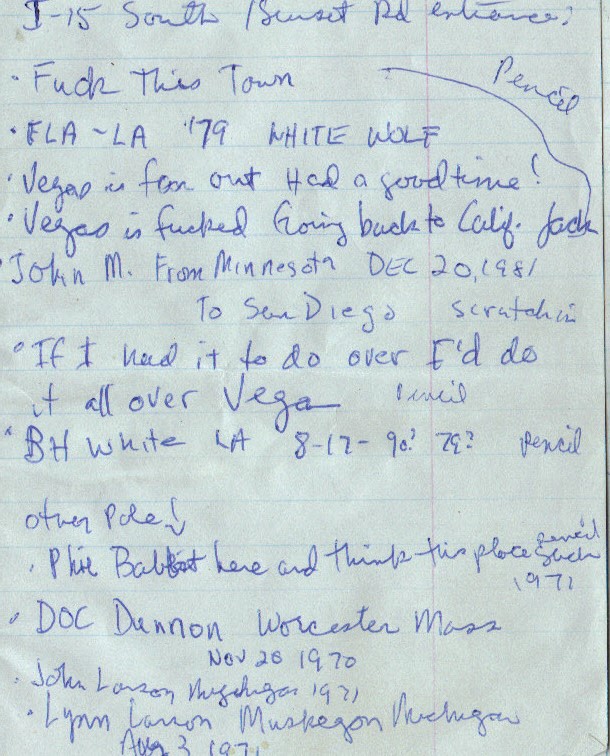 I-15 South / Sunset Rd entrance:
· Fuck This Town
Pencil
· FLA - LA '79 WHITE WOLF
· Vegas is far out Had a good time!
· Vegas is fucked Going back to Calif. Jack
· John M. From Minnesota DEC 20, 1981
To San Diego scratch in
· If I had it to do over I'd do
it all over Vega pencil
· BH White LA 8-17- 90? 79? pencil
other Pole ↓
· Phil here and think this place Suck pencil
1971
· DOC Dannon Worcester Mass
Nov 28 1970
· John Larson 1971
· Lynn Larson Muskegon Michigan
Aug 3 1971